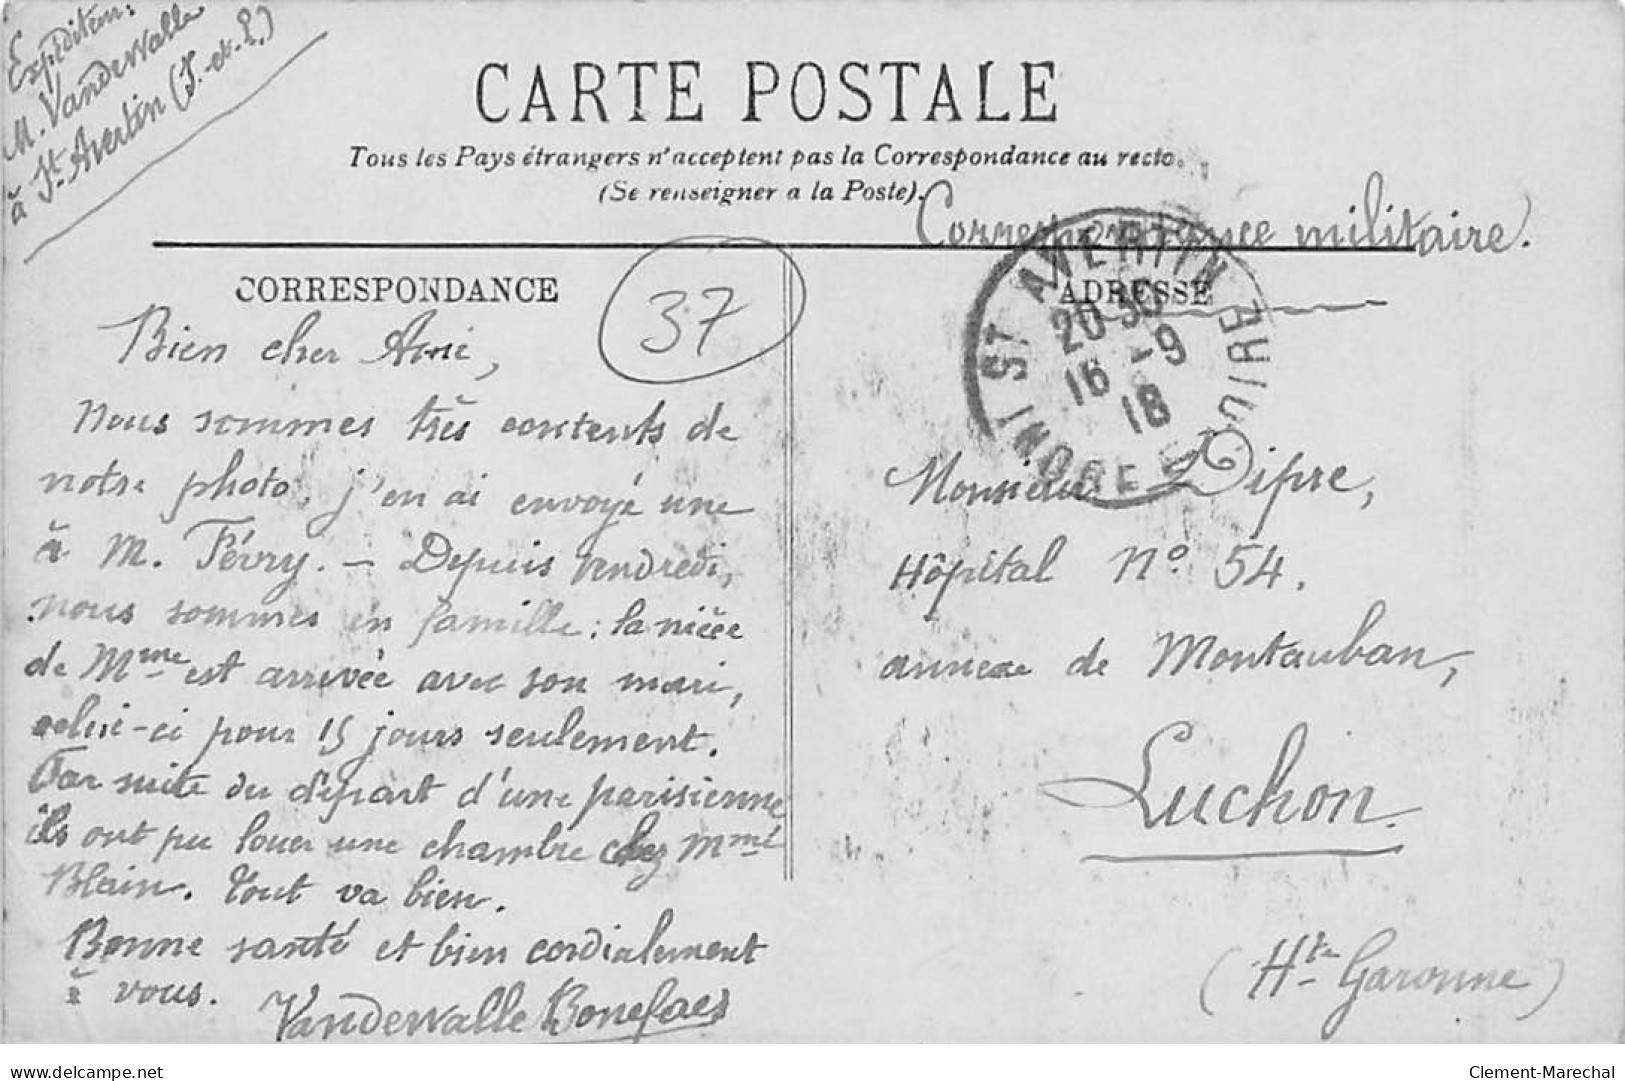 Expéditeur:
M. Vandewalle
à St. Avertin (I.-et-L.)
CARTE POSTALE
Tous les Pays étrangers n'acceptent pas la Correspondance au recto.
(Se renseigner a la Poste).
Correspondance militaire.
CORRESPONDANCE
37
Bien cher Ami,
Nous sommes très contents de
notre photo, j'en ai envoyé une
à M. Févry. – Depuis vendredi,
nous sommes en famille: la nièce
de Mme est arrivée avec son mari,
celui-ci pour 15 jours seulement.
Par suite du départ d'une parisienne
ils ont pu louer une chambre chez Mme
Blain. Tout va bien.
Bonne santé et bien cordialement
à vous. Vandewalle Bonefaes
ADRESSE
ST AVERTIN
INDRE ET LOIRE
20 30
16 - 9
18
Monsieur Dipre,
Hôpital No 54.
annexe de Montauban,
Luchon.
(Hte Garonne)
www.delcampe.net
Clement-Marechal